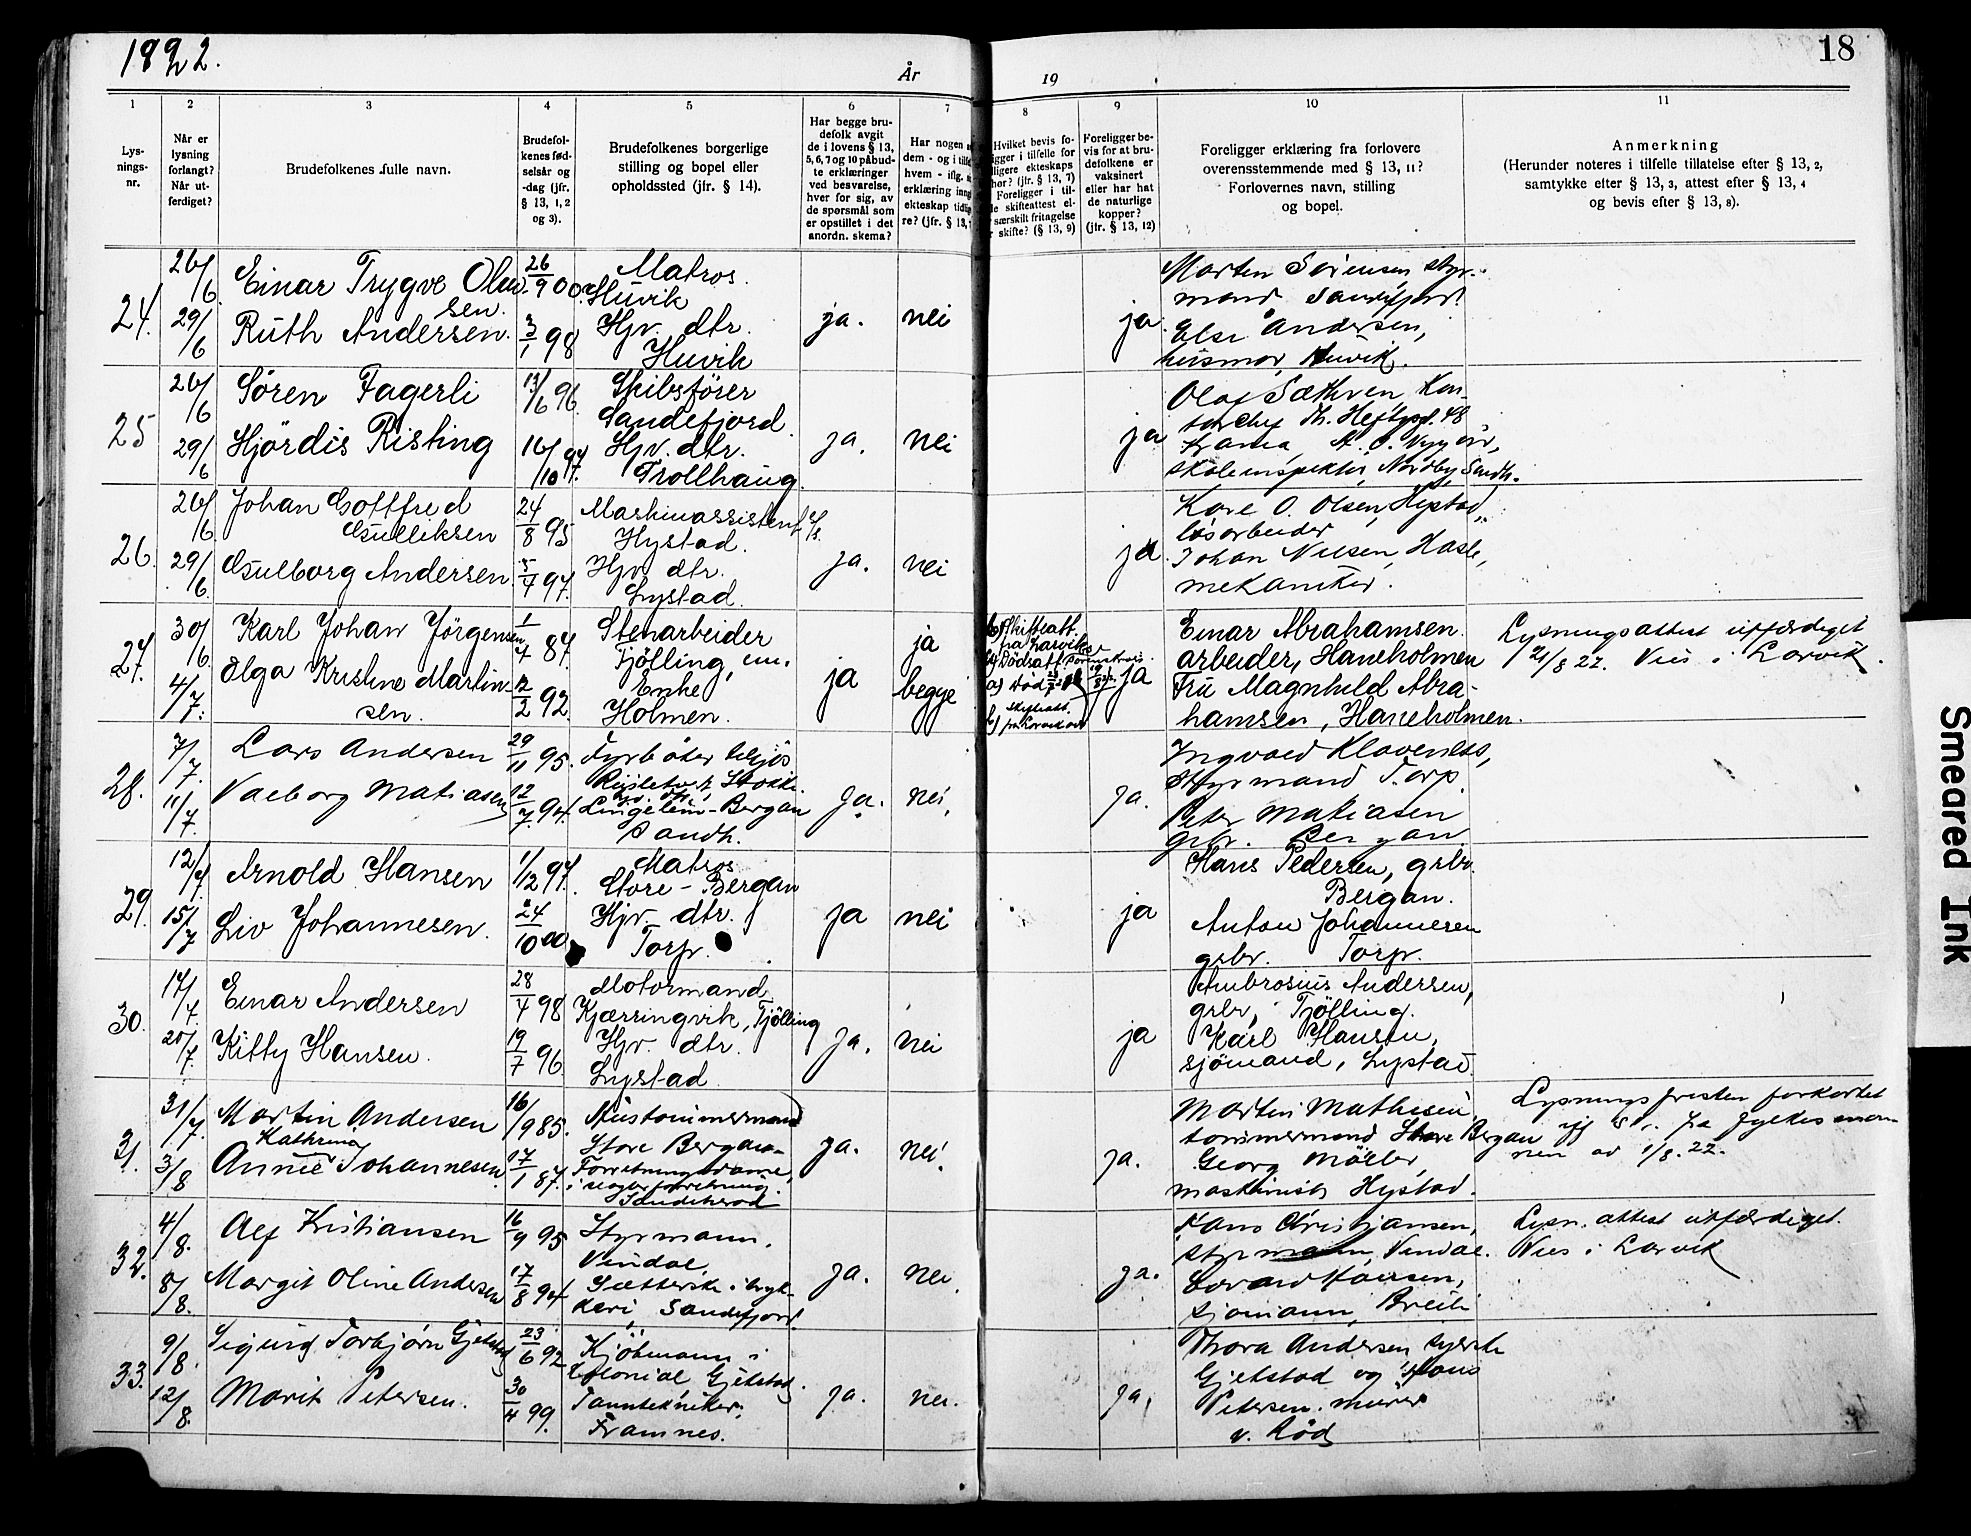 1922.
År
19
18
1
2
3
4
5
6
7
8
9
10
11
Lys-
nings-
nr.
Når er
lysning
forlangt?
Når ut-
ferdiget?
Brudefolkenes fulle navn.
Brudefol-
kenes fød-
selsår og
-dag (jfr.
§ 13, 1, 2
og 3).
Brudefolkenes borgerlige
stilling og bopel eller
opholdssted (jfr. § 14).
Har begge bru-
defolk avgit
de i lovens § 13,
5, 6, 7 og 10 påbud-
te erklæringer
ved besvarelse,
hver for sig, av
de spørsmål som
er opstillet i det
anordn. skema?
Har nogen
dem - og i tilfe
hvem - iflg.
erklæring inng
ekteskap tidlig
re? (jfr. § 13,
Hvilket bevis fo-
ligger i tilfelle for
dligere ekteskaps
hør? (jfr. § 13, 7)
Foreligger i til-
le skifteattest el-
særskilt fritagelse
skifte? (§ 13, 9)
Foreligger be-
vis for at bru-
defolkene er
vaksinert
eller har hat
de naturlige
kopper?
(jfr. § 13, 12)
Foreligger erklæring fra forlovere
overensstemmende med § 13, 11?
Forlovernes navn, stilling
og bopel.
Anmerkning
(Herunder noteres i tilfelle tillatelse efter § 13, 2,
samtykke efter § 13, 3, attest efter § 13, 4
og bevis efter § 13, 8).
24.
26/6
29/6
Einar Trygve Olav-
sen.
Ruth Andersen.
26/9 00.
3/1 98
Matros.
Huvik
Hjv. dtr.
Huvik
ja.
nei
ja.
Morten Sørensen, styr-
mand Sandefjord
Else Andersen,
husmor, Huvik.
25
26/6
29/6
Sören Fagerli
Hjördis Risting
13/6 96.
16/10 97.
Skibsförer
Sandefjord.
Hjv. dtr.
Trollhaug.
ja.
nei
ja
Olaf Sæthren Kon-
torchef Th. Heftyesgt. 48
skoleinspektør, Nordby, Sandh.
26.
26/6
29/6
Johan Gottfred
Gulliksen
Gulborg Andersen
24/8 95
5/4 97.
Maskinassistent
Hystad.
Hjv. dtr.
Lystad.
ja.
nei
ja.
Kare O. Olsen, Hystad,
løsarbeider
Johan Nilsen, Hasle,
mekaniker.
27.
30/6
4/7.
Karl Johan Jörgensen
Olga Kristine Martin-
sen.
1/4 87.
12/2 92.
Stenarbeider
Tjölling, um.
Enke
Holmen.
ja
ja
begge
Skifteatt.
fra Larvik
Dødsatt.
a) død
skifteatt.
ja
Einar Abrahamsen.
arbeider, Haneholmen
Fru Magnhild Abra-
hamsen, Haneholmen.
Lysningsattest utfærdiget
21/8 22. Vies i Larvik.
28.
7/7.
11/7.
Lars Andersen
Valborg Matiasen
29/11 95.
12/7. 94.
Fyrbøter tilsjøs
hjv. dtr.
Lingelem-Bergan
Sandh.
ja.
nei.
ja.
Ingvald Klaveness,
Styrmand Torp.
Peter Matiasen
grbr. Bergan
29.
12/7.
15/7
Arnold Hansen
Liv Johannesen.
1/12 97.
24/10 00
Matros
Store-Bergan
Hjv. dtr.
Torp.
ja
nei
ja
Hans Pedersen, grbr.
Bergan.
Anton Johannesen
grbr. Torp.
30.
17/7.
20/7.
Einar Andersen
Kitty Hansen.
28/4 98
19/7 96
Motormand
Kjærringvik, Tjölling
Hjv. dtr.
Lystad.
ja.
nei
ja
Ambrosius Andersen,
grbr, Tjölling.
Karl Hansen,
sjömand, Lystad.
31.
31/7.
3/8
Martin Andersen
Kathrina
Annie Johannesen.
16/9 85.
17/1 87.
Hustømmermand
Store Bergan
Forretningsdame,
Sandeherød
ja.
nei.
ja.
Martin Mathisen,
tømmermand Store Bergan
Georg Møller,
maskinist Hystad.
Lysningsfristen forkortet
fra fylkesman-
nen av 1/8. 22.
32.
4/8.
8/8.
Alf Kristiansen
Margit Oline Andersen
16/9 95
17/8 94
Styrmann,
Vindal
Sætterske i tryk-
keri, Sandefjord.
ja.
nei.
ja.
Hans Christiansen,
styrmann, Vindal.
Edvard Hansen,
sjømann, Breili
Lysn. attest utfærdiget.
Vies i Larvik
33.
9/8.
12/8.
Sigurd Torbjørn Gjekstad
Marit Petersen.
23/6 92
30/4 99.
Kjöbmann i
kolonial Gjekstad.
Tanntekniker,
Framnes.
ja.
nei.
ja,
Thora Andersen syerske
Gjekstad og Hans
Petersen. murer
v. Röd
Smeared Ink